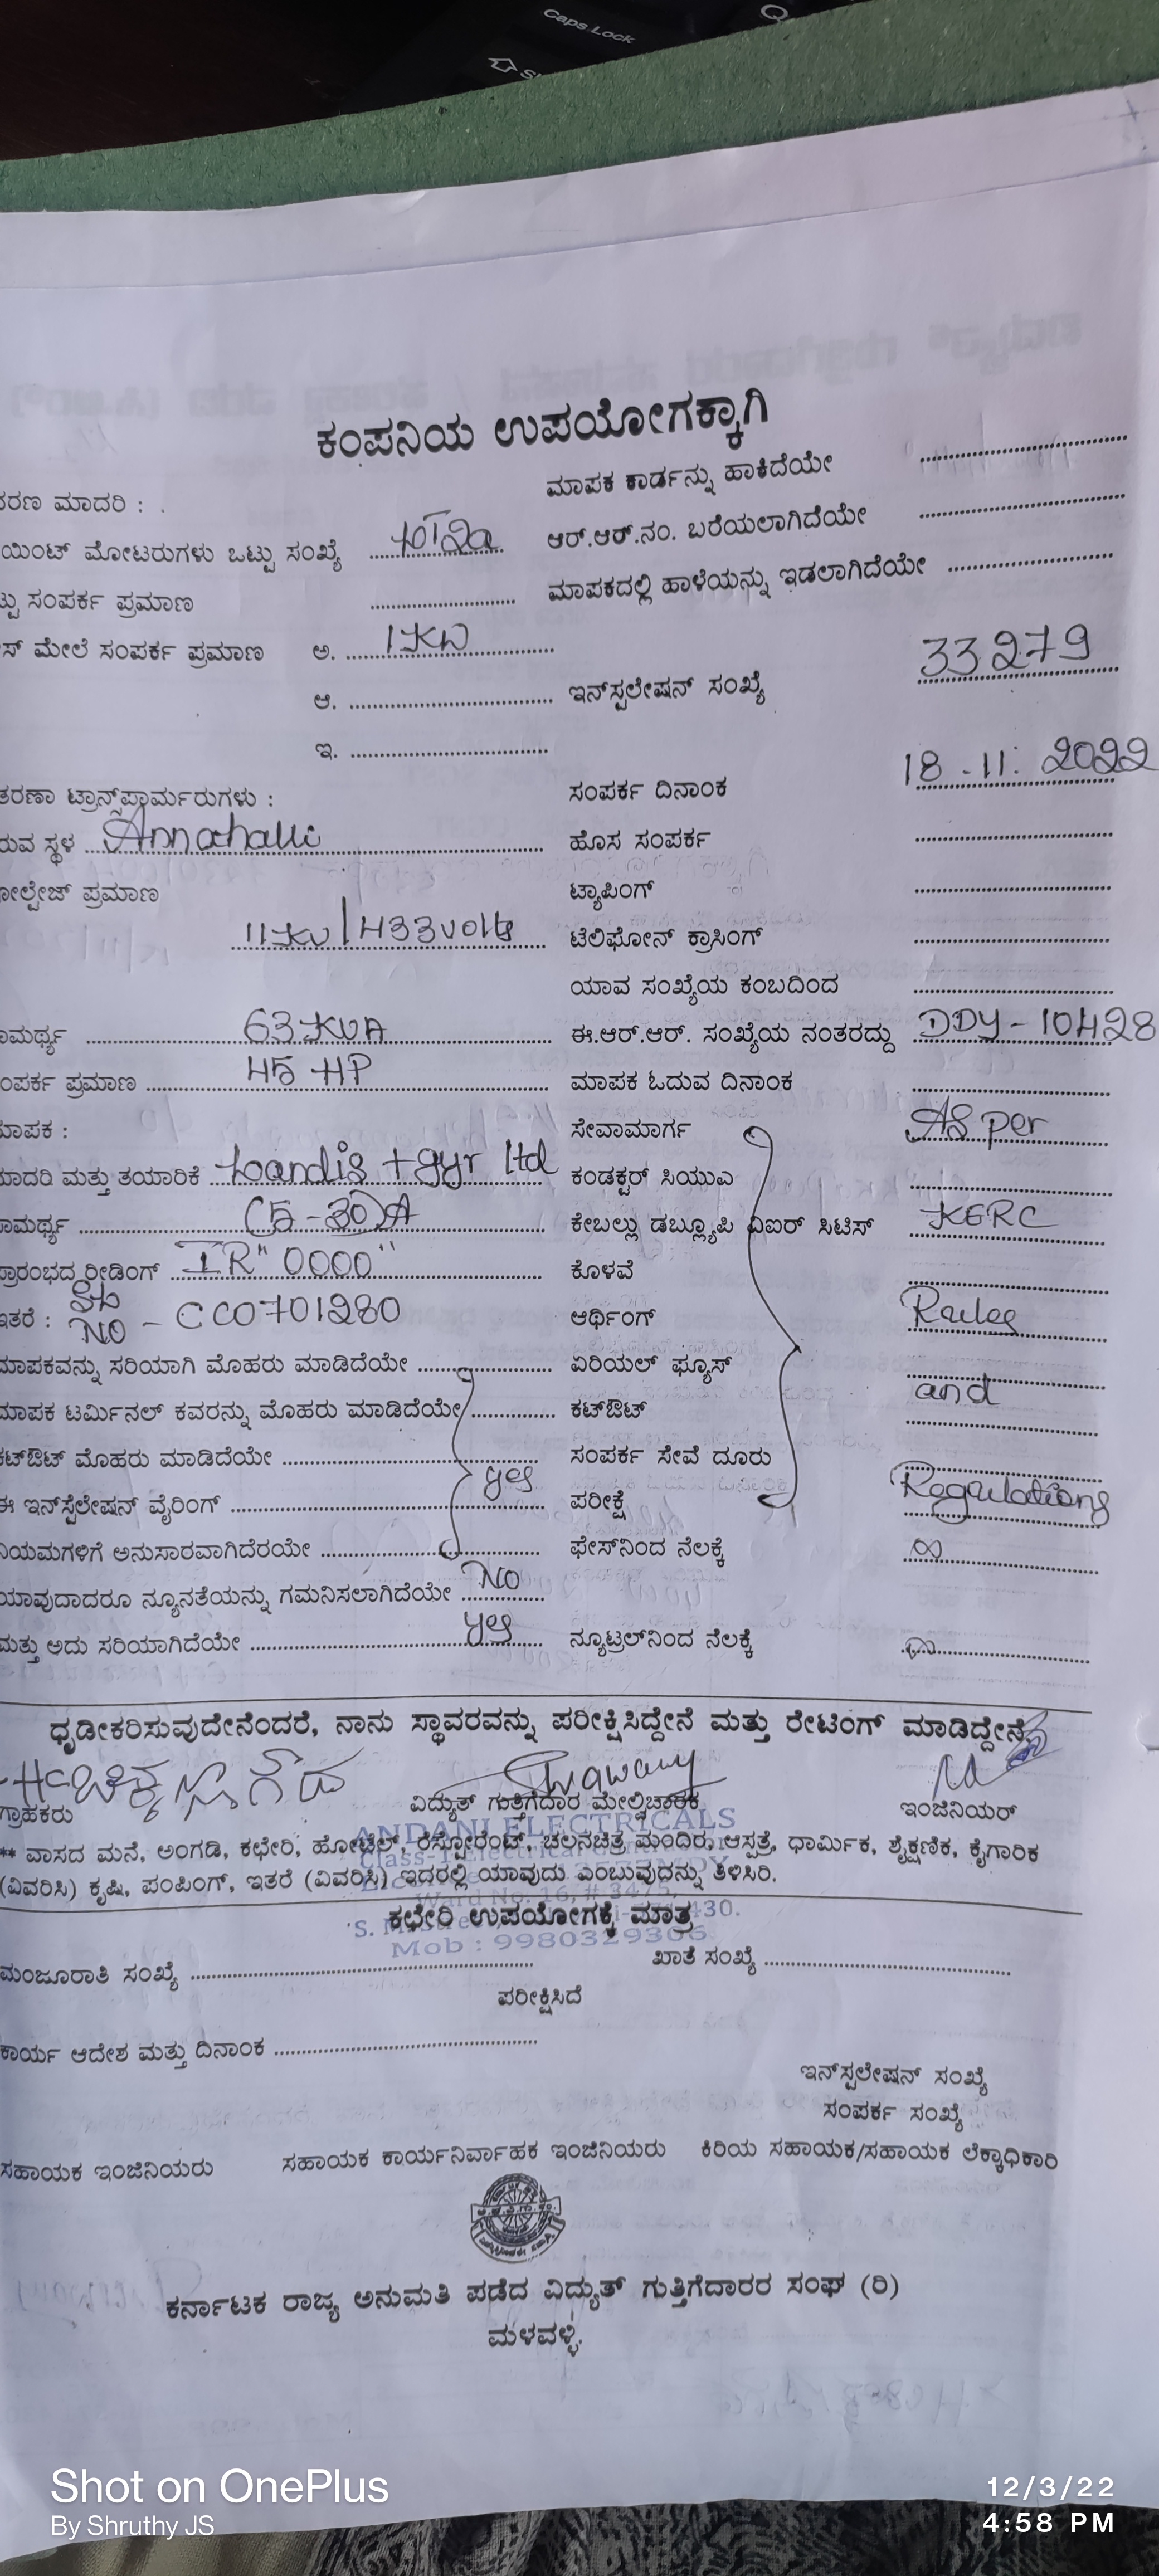 Caps Lock
ಕಂಪನಿಯ ಉಪಯೋಗಕ್ಕಾಗಿ
ಮಾಪಕ ಕಾರ್ಡನ್ನು ಹಾಕಿದೆಯೇ
ರಣ ಮಾದರಿ :
ಯಿಂಟ್ ಮೋಟರುಗಳು ಒಟ್ಟು ಸಂಖ್ಯೆ ಆರ್.ಆರ್.ನಂ. ಬರೆಯಲಾಗಿದೆಯೇ
ಟ್ಟು ಸಂಪರ್ಕ ಪ್ರಮಾಣ ಮಾಪಕದಲ್ಲಿ ಹಾಳೆಯನ್ನು ಇಡಲಾಗಿದೆಯೇ
ಸ್ ಮೇಲೆ ಸಂಪರ್ಕ ಪ್ರಮಾಣ ಅ. 1KW
ಆ. ಇನ್‌ಸ್ಟಲೇಷನ್ ಸಂಖ್ಯೆ 33279
ಇ.
ತರಣಾ ಟ್ರಾನ್ಸ್‌ಫಾರ್ಮರುಗಳು : ಸಂಪರ್ಕ ದಿನಾಂಕ 18-11-2022
ರುವ ಸ್ಥಳ Annahalli ಹೊಸ ಸಂಪರ್ಕ
ೋಲ್ಟೇಜ್ ಪ್ರಮಾಣ ಟ್ಯಾಪಿಂಗ್
11KV/433volts ಟೆಲಿಫೋನ್ ಕ್ರಾಸಿಂಗ್
ಯಾವ ಸಂಖ್ಯೆಯ ಕಂಬದಿಂದ
ಾಮರ್ಥ್ಯ 63KVA ಈ.ಆರ್.ಆರ್. ಸಂಖ್ಯೆಯ ನಂತರದ್ದು DDY-10428
ಂಪರ್ಕ ಪ್ರಮಾಣ 45 HP ಮಾಪಕ ಓದುವ ದಿನಾಂಕ
ಮಾಪಕ : ಸೇವಾಮಾರ್ಗ As per
ಮಾದರಿ ಮತ್ತು ತಯಾರಿಕೆ Landis + gyr ltd ಕಂಡಕ್ಟರ್ ಸಿಯುಎ
ಾಮರ್ಥ್ಯ (5-30)A ಕೇಬಲ್ಲು ಡಬ್ಲ್ಯೂಪಿ ವಿಐಆರ್ ಸಿಟಿಸ್ KERC
ಪ್ರಾರಂಭದ ರೀಡಿಂಗ್ IR "0000" ಕೊಳವೆ
ಇತರೆ : NO - CC0701280 ಆರ್ಥಿಂಗ್ Rules
ಮಾಪಕವನ್ನು ಸರಿಯಾಗಿ ಮೊಹರು ಮಾಡಿದೆಯೇ ಏರಿಯಲ್ ಫ್ಯೂಸ್
ಮಾಪಕ ಟರ್ಮಿನಲ್ ಕವರನ್ನು ಮೊಹರು ಮಾಡಿದೆಯೇ ಕಟ್‌ಔಟ್ and
ಕಟ್‌ಔಟ್ ಮೊಹರು ಮಾಡಿದೆಯೇ ಸಂಪರ್ಕ ಸೇವೆ ದೂರು
ಈ ಇನ್‌ಸ್ಪೆಲೇಷನ್ ವೈರಿಂಗ್ yes ಪರೀಕ್ಷೆ Regulations
ನಿಯಮಗಳಿಗೆ ಅನುಸಾರವಾಗಿದೆರಯೇ ಫೇಸ್‌ನಿಂದ ನೆಲಕ್ಕೆ ∞
ಯಾವುದಾದರೂ ನ್ಯೂನತೆಯನ್ನು ಗಮನಿಸಲಾಗಿದೆಯೇ No
ಮತ್ತು ಅದು ಸರಿಯಾಗಿದೆಯೇ yes ನ್ಯೂಟ್ರಲ್‌ನಿಂದ ನೆಲಕ್ಕೆ
ಧೃಡೀಕರಿಸುವುದೇನೆಂದರೆ, ನಾನು ಸ್ಥಾವರವನ್ನು ಪರೀಕ್ಷಿಸಿದ್ದೇನೆ ಮತ್ತು ರೇಟಿಂಗ್ ಮಾಡಿದ್ದೇನೆ.
ಗ್ರಾಹಕರು ವಿದ್ಯುತ್ ಗುತ್ತಿಗೆದಾರ ಮೇಲ್ವಿಚಾರಕ ಇಂಜಿನಿಯರ್
ANDANI ELECTRICALS
** ವಾಸದ ಮನೆ, ಅಂಗಡಿ, ಕಛೇರಿ, ಹೋಟೆಲ್, ರೆಸ್ಟೋರೆಂಟ್, ಚಲನಚಿತ್ರ ಮಂದಿರ, ಆಸ್ಪತ್ರೆ, ಧಾರ್ಮಿಕ, ಶೈಕ್ಷಣಿಕ, ಕೈಗಾರಿಕ
(ವಿವರಿಸಿ) ಕೃಷಿ, ಪಂಪಿಂಗ್, ಇತರೆ (ವಿವರಿಸಿ) ಇದರಲ್ಲಿ ಯಾವುದು ಎಂಬುವುದನ್ನು ತಿಳಿಸಿರಿ.
ಕಛೇರಿ ಉಪಯೋಗಕ್ಕೆ ಮಾತ್ರ
Mob : 9980329306
ಮಂಜೂರಾತಿ ಸಂಖ್ಯೆ ಖಾತೆ ಸಂಖ್ಯೆ
ಪರೀಕ್ಷಿಸಿದೆ
ಕಾರ್ಯ ಆದೇಶ ಮತ್ತು ದಿನಾಂಕ
ಇನ್‌ಸ್ಪಲೇಷನ್ ಸಂಖ್ಯೆ
ಸಂಪರ್ಕ ಸಂಖ್ಯೆ
ಸಹಾಯಕ ಇಂಜಿನಿಯರು ಸಹಾಯಕ ಕಾರ್ಯನಿರ್ವಾಹಕ ಇಂಜಿನಿಯರು ಕಿರಿಯ ಸಹಾಯಕ/ಸಹಾಯಕ ಲೆಕ್ಕಾಧಿಕಾರಿ
ಕರ್ನಾಟಕ ರಾಜ್ಯ ಅನುಮತಿ ಪಡೆದ ವಿದ್ಯುತ್ ಗುತ್ತಿಗೆದಾರರ ಸಂಘ (ರಿ)
ಮಳವಳ್ಳಿ.
Shot on OnePlus
By Shruthy JS
12/3/22
4:58 PM